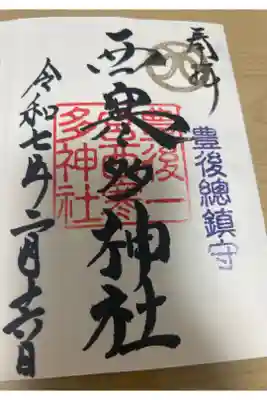 奉拝
豊後總鎮守
西寒多神社
豊後一
宮西寒
多神社
令和七年二月十六日